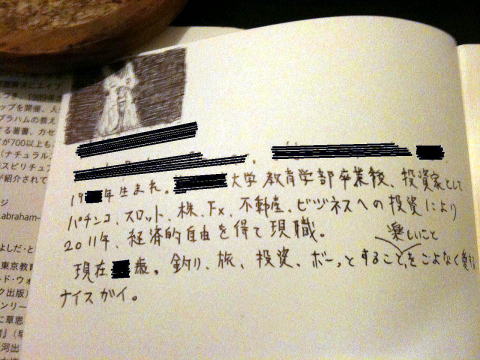 ップを開催。人
ブラハムの教え
る著書、カセ
が700以上も
(ナチュラル
スピリチュア
が紹介されて
ジ
abraham-
よしだ・と
東京教育
ルド・ウォ
ク出版)
ンリー
に草思
』(早
河出
19 年生まれ。 大学教育学部卒業後、投資家として
パチンコ、スロット、株、Fx、不動産、ビジネスへの投資により
2011年、経済的自由を得て現職。
楽しいこと
現在 歳。釣り、旅、投資、ボーっとすることをこよなく愛す
ナイスガイ。